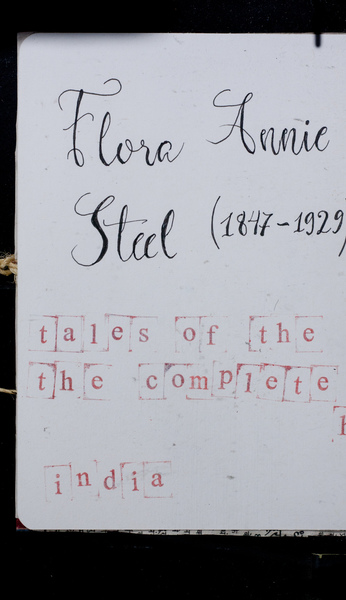 Flora Annie
Steel (1847-1929)
tales of the
the complete
india